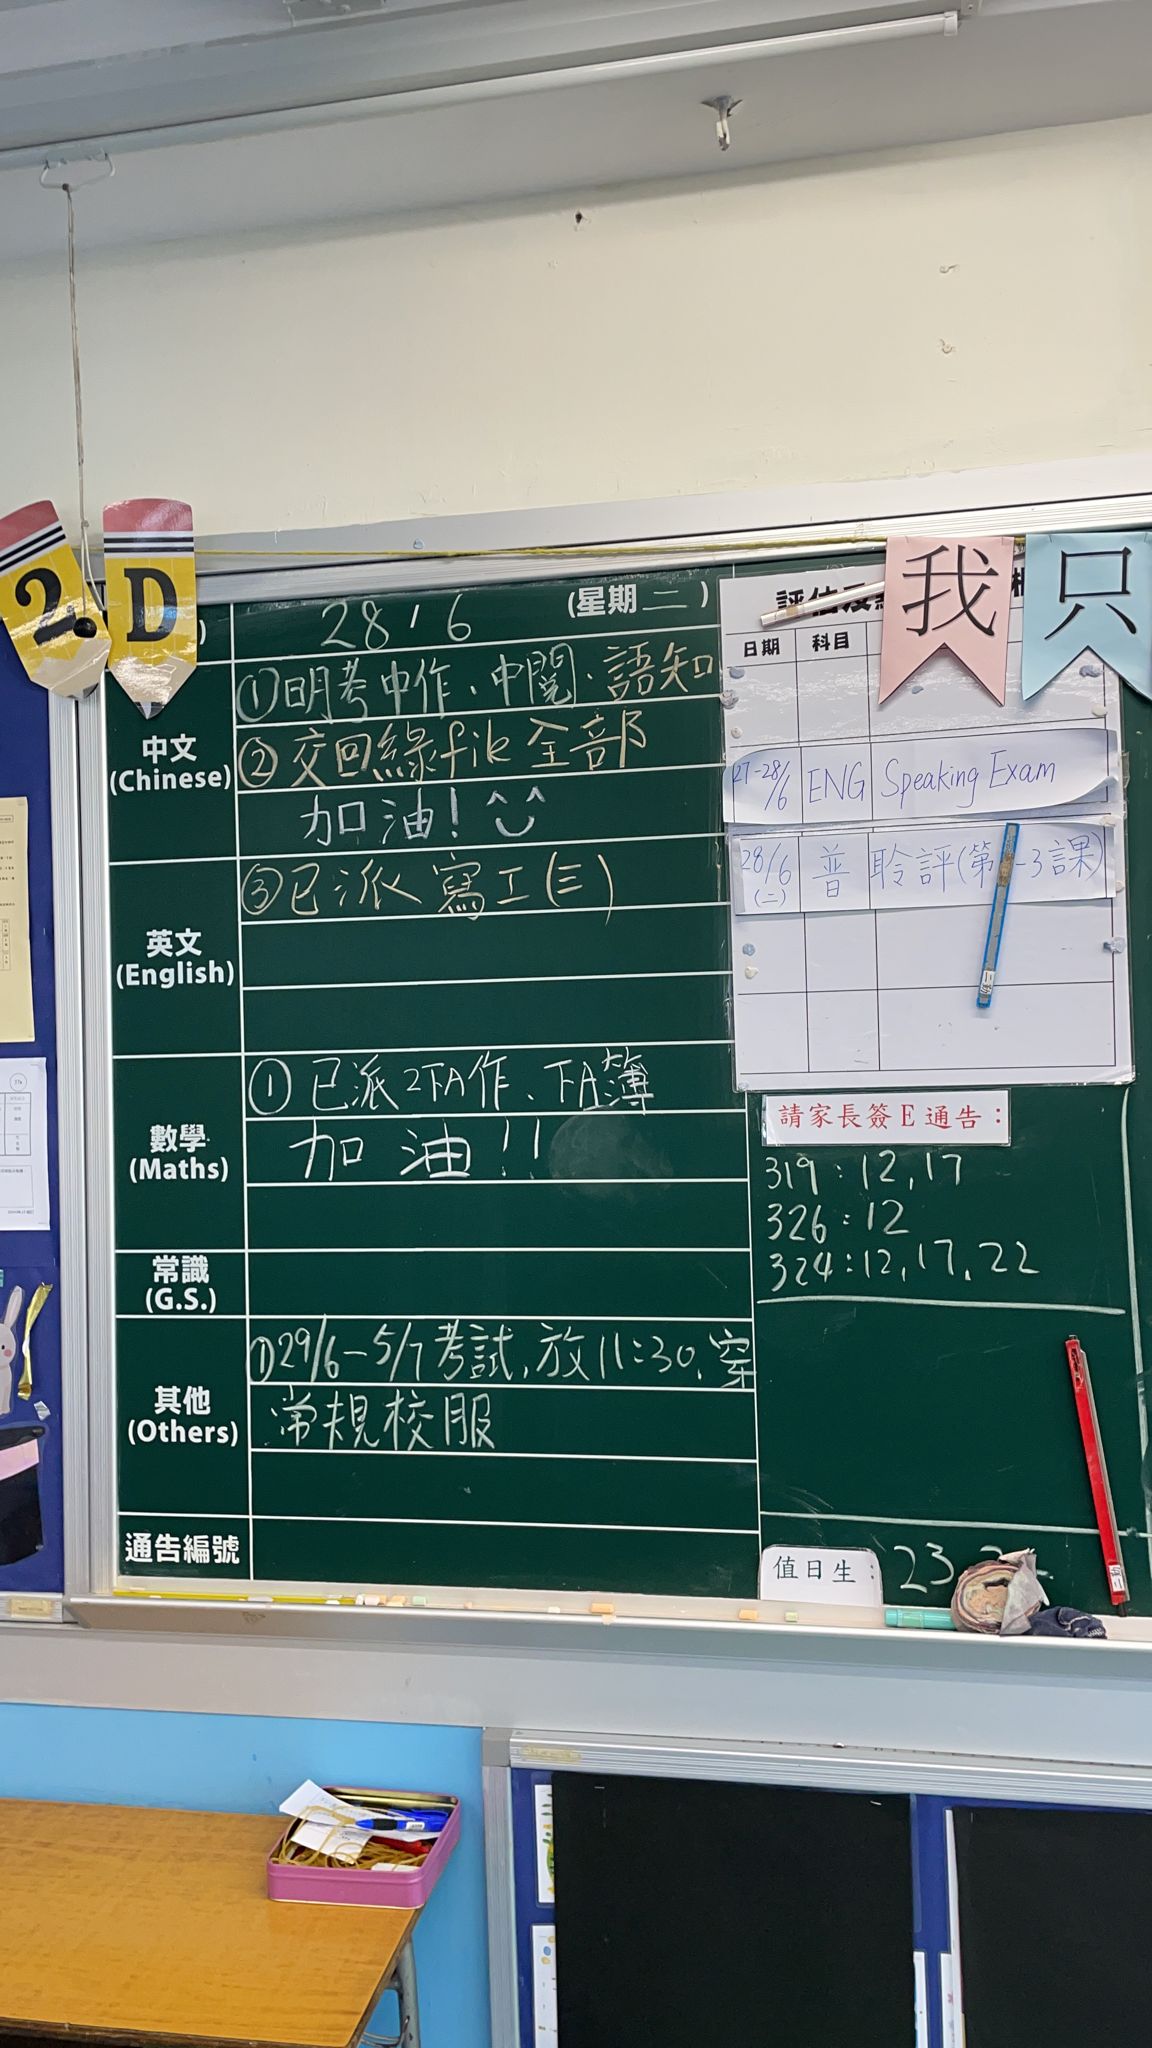 2. D
28 / 6 (星期二)
中文
(Chinese)
①明考中作、中閱、語知
②交回綠file全部
加油! ^^
英文
(English)
③已派寫工(三)
數學
(Maths)
① 已派2下A作、下A簿
加油!!
常識
(G.S.)
其他
(Others)
①29/6-5/7考試,放11:30,穿
常規校服
通告編號
我 只
評估及
日期 科目
27-28/6 ENG Speaking Exam
28/6 (二) 普 聆評(第 -3課)
請家長簽E通告:
319:12,17
326:12
324:12,17,22
值日生: 23